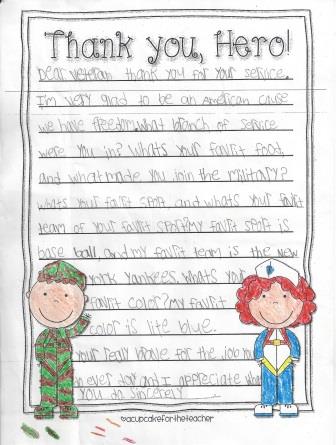 Thank you, Hero!
Dear veteran thank you for your service.
I'm very glad to be an American cause
we have freedom. what branch of service
were you in? whats your favrit food
and what made you join the military?
whats your favrit sport and whats your favrit
team of your favrit sport? my favrit sport is
base ball, and my favrit team is the new
york yankees. whats your
favrit color? my favrit
color is lite blue.
your realy brave for the job you
ever do and I appreciate what
you do sincerely
©acupcakefortheteacher